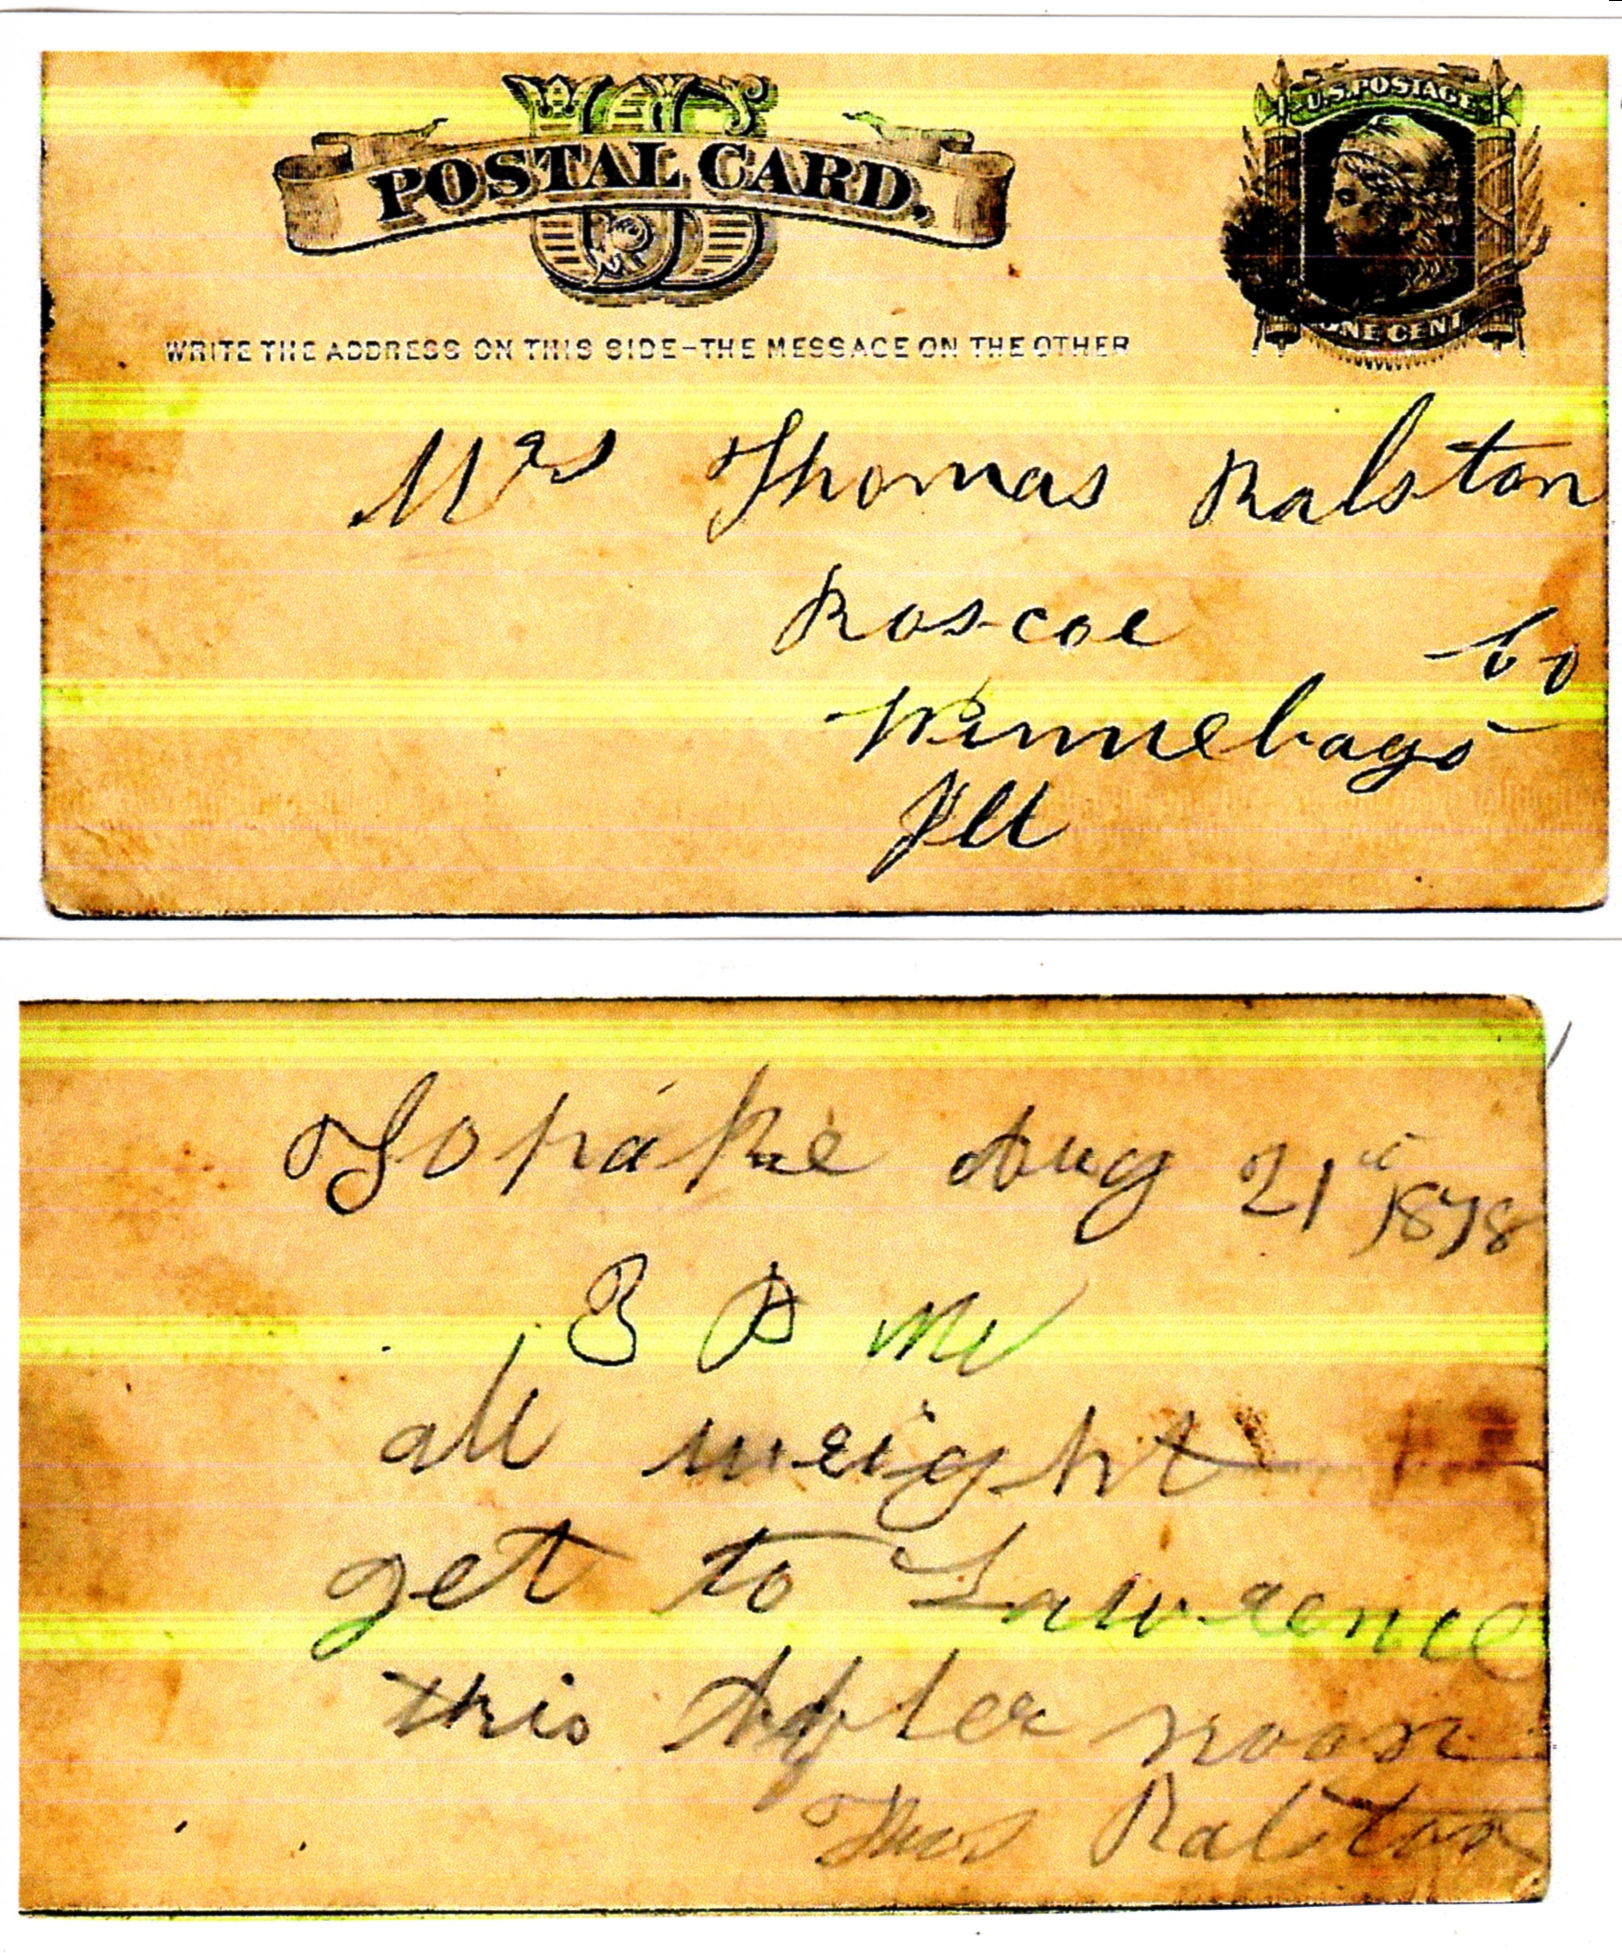 US
POSTAL CARD.
U.S. POSTAGE
ONE CENT
WRITE THE ADDRESS ON THIS SIDE-THE MESSAGE ON THE OTHER
Mrs Thomas Ralston
Roscoe
Winnebago Co
Ill
Topake Aug 21 1878
3 P M
all weight
get to Lawrence
this After noon
Thos Ralston